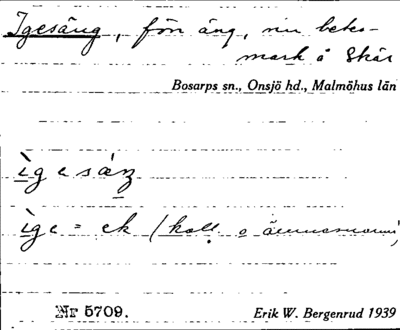 Igesäng, förr äng, nu betes-
mark å Skår
Bosarps sn., Onsjö hd., Malmöhus län
ìgesáŋ
ìge = ek (koll. o ämnesnamn)
Nr 5709. Erik W. Bergenrud 1939